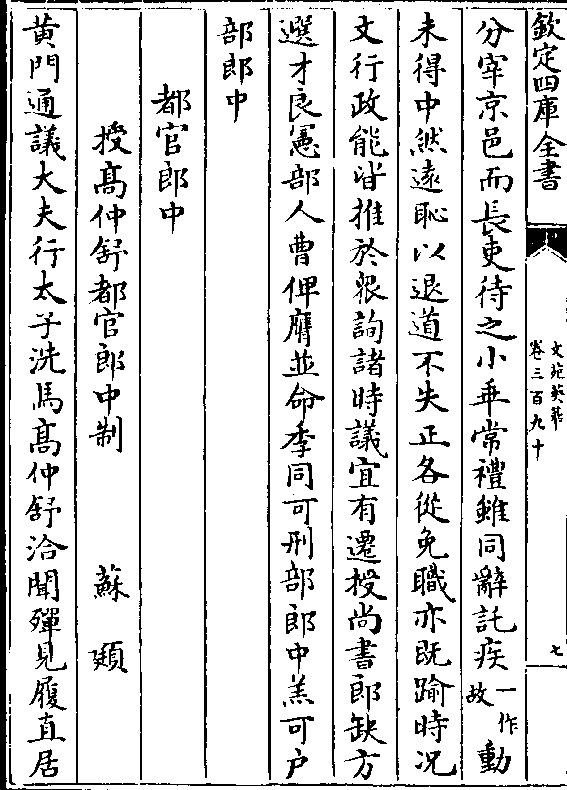 欽定四庫全書
文苑英華
卷三百九十
七
分宰京邑而長吏待之小乖常禮雖同辭託疾一作故動
未得中然遠恥以退道不失正各從免職亦既踰時况
文行政能皆推於衆詢諸時議宜有遷授尚書郎缺方
選才良憲部人曹俾膺並命季同可刑部郎中羔可户
部郎中
都官郎中
授高仲舒都官郎中制 蘇頲
黄門通議大夫行太子洗馬高仲舒洽聞殫見履直居